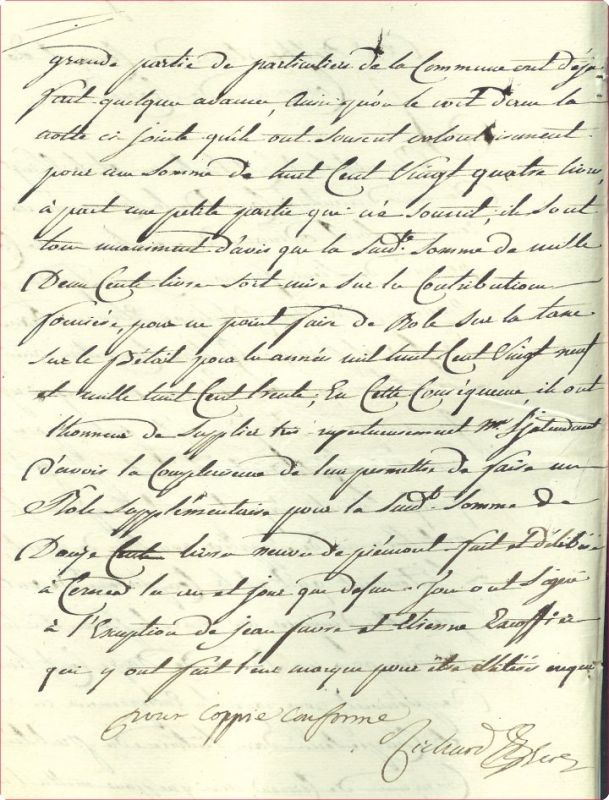 grande partie de particuliers de la Commune ont déja
fait quelque avance, ainsi qu'on le voit dans la
notte ci jointe quils ont souscrit volontairement
pour une Somme de huit Cent Vingt quatre livres,
à part une petite partie qui n'a souscrit, ils sont
tous unaniment d'avis que la Sudte Somme de mille
Deux Cents livre soit mise sur la Contribution
foncière, pour ne point faire de Role sur la taxe
sur le Bétail pour les années mil huit Cent Vingt neuf
et mille huit Cent trente, En Cette Conséquence, ils ont
l'honneur de Supplier très respectueusement Mr. L'jntendant
d'avoir la Complaisence de leur permettre de faire un
Role Supplémentaire pour la Sudte Somme de
Douze Cents livres neuves de piémont. fait et délibéré
à les an et jour que dessus
à l'Exeption de jean favre et Etienne
qui y ont fait leur marque pour être
pour coppie conforme
Richard